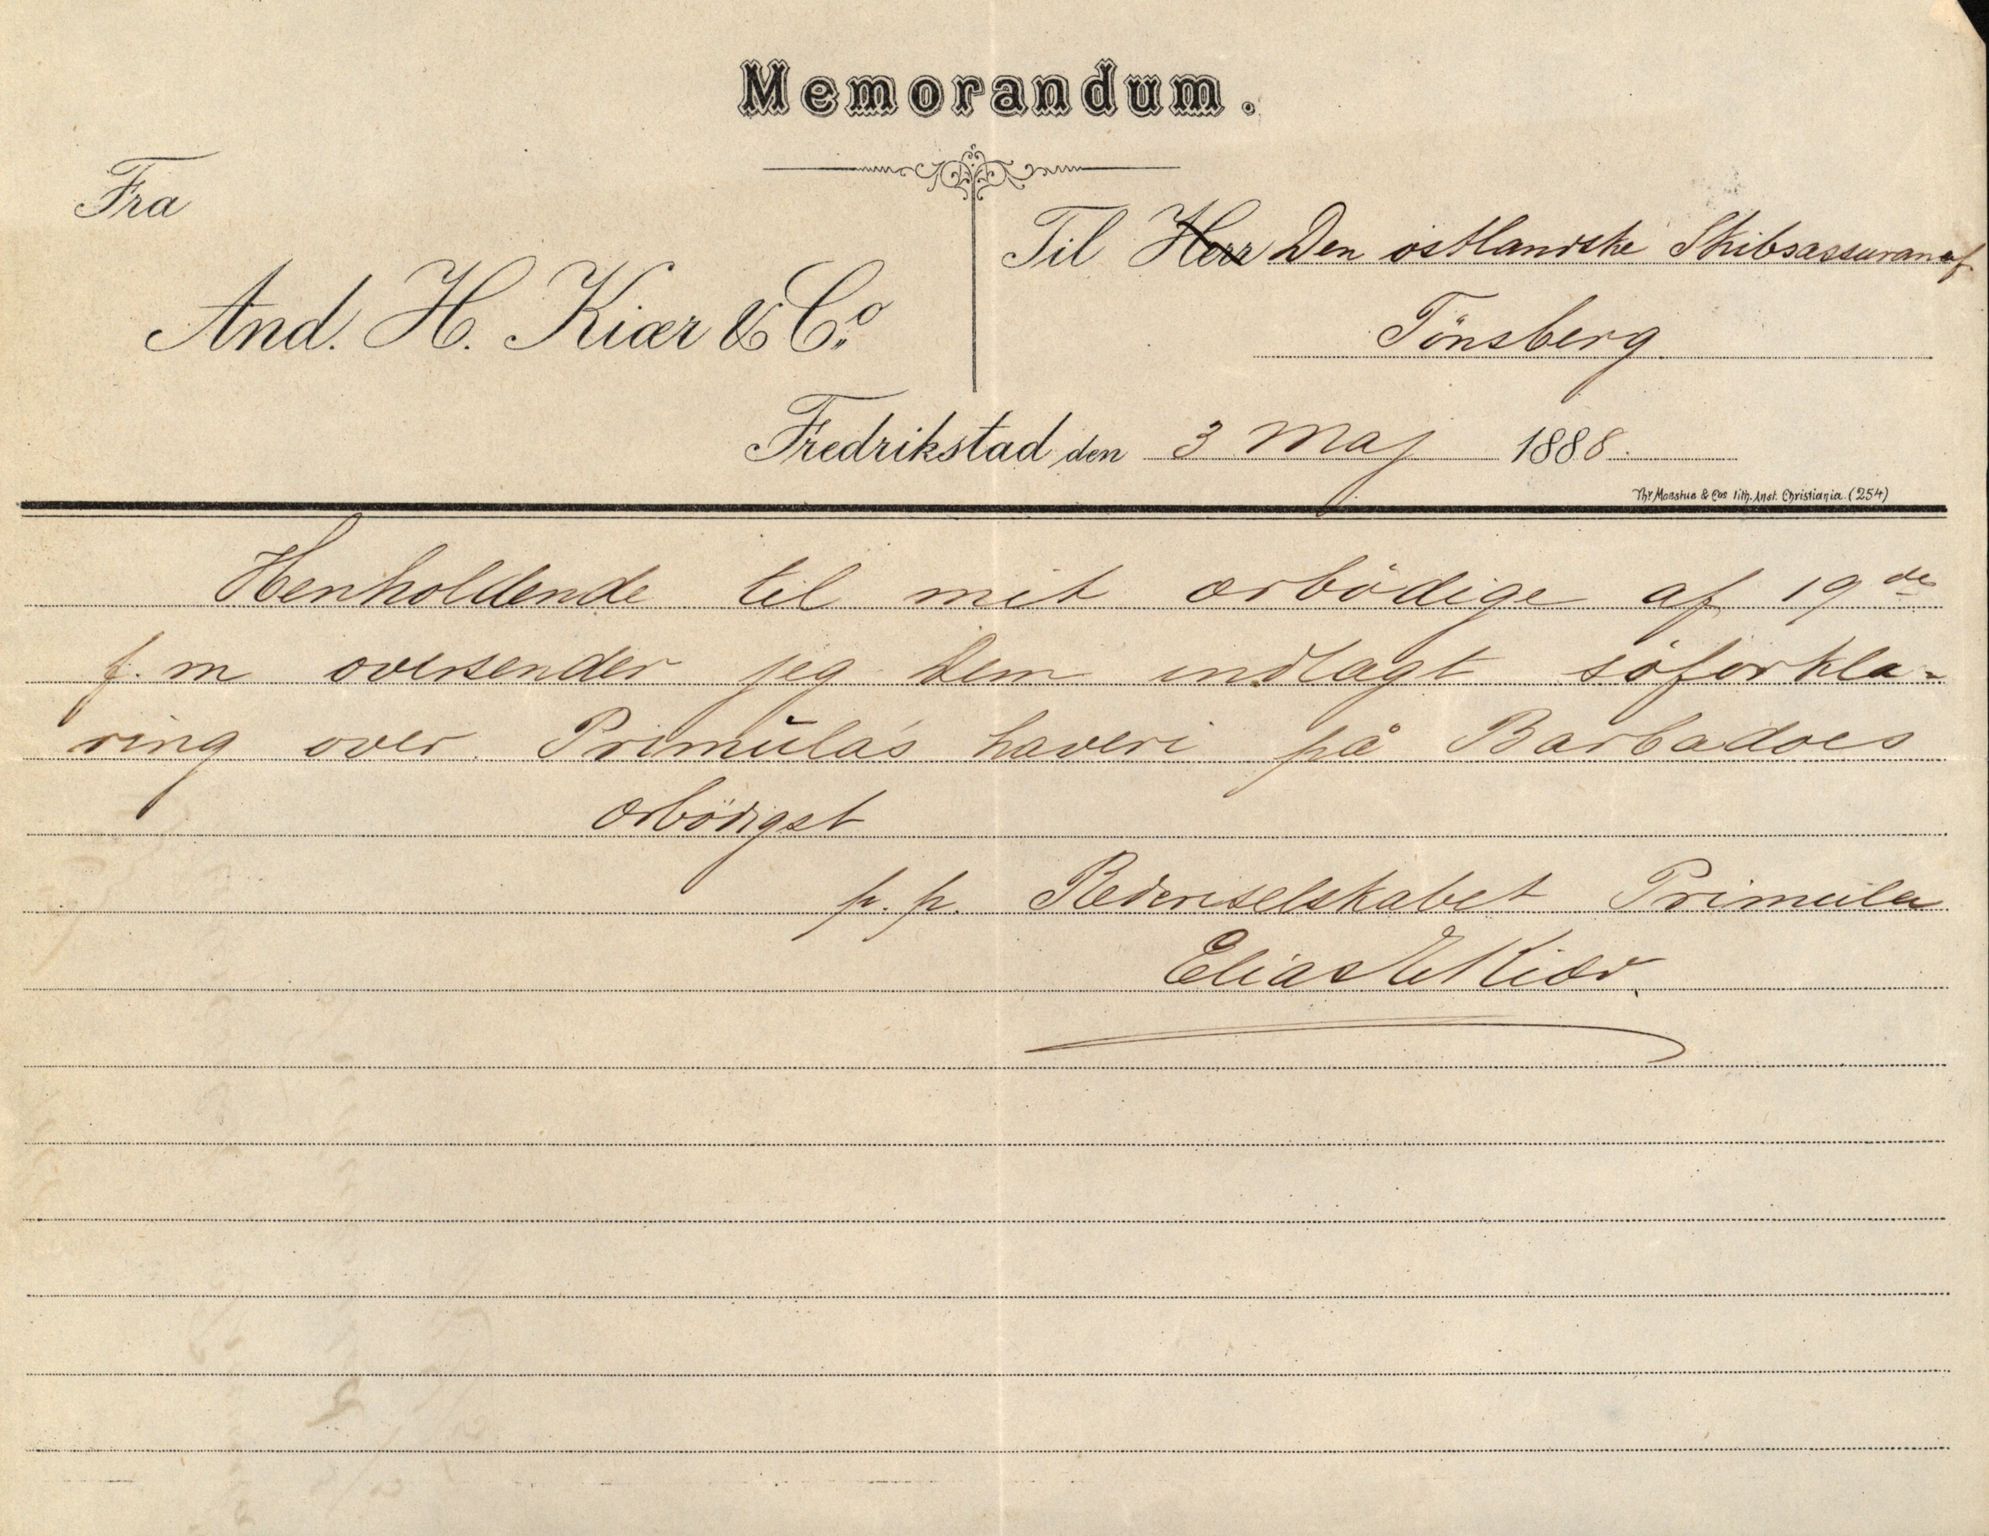 Memorandum.
Fra
And. H. Kiær & Co.
Til Herr Den østlandske Skibsassurancef.
Tönsberg
Fredrikstad den 3 Maj 1888.
Thr Moestue & Cos lith. Anst. Christiania. (254)
Henholdende til mit ærbödige af 19de
f. m oversender jeg Dem indlagt söforkla-
ring over Primula's haveri på Barbadoes
ærbödigst
p. p. Rederiselskabet Primula
Elias C Kiær.